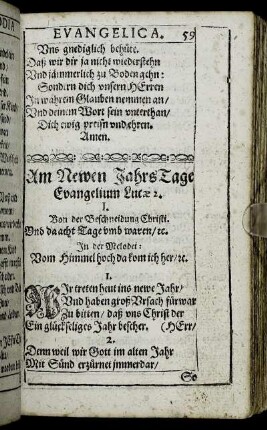 EVANGELICA. 59
Vns gnediglich behüte.
Daß wir dir ja nicht wiederstehn
Vnd jämmerlich zu Boden gehn:
Sondern dich vnsern HErren
In wahrem Glauben nemmen an/
Vnd deinem Wort sein vnterthan/
Dich ewig preisn vnd ehren.
Amen.
Am Newen Jahrs Tage
Evangelium Lucæ 2.
I.
Von der Beschneidung Christi.
Vnd da acht Tage vmb waren/ ꝛc.
In der Melodei:
Vom Himmel hoch da kom ich her/ ꝛc.
1.
WIr treten heut ins newe Jahr/
Vnd haben groß Vrsach fürwar
Zu bitten/ daß vns Christ der
Ein glückseliges Jahr bescher. (HErr/
2.
Denn weil wir Gott im alten Jahr
Mit Sünd erzürnet immerdar/
So